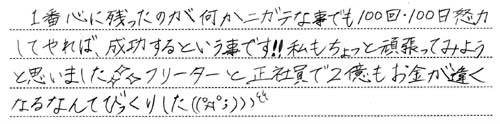 1番心に残ったのが何かニガテな事でも100回・100日努力
してやれば、成功するという事です!!私もちょっと頑張ってみよう
と思いました☆☆フリーターと正社員で2億もお金が違く
なるなんてびっくりした((°Д°;)))